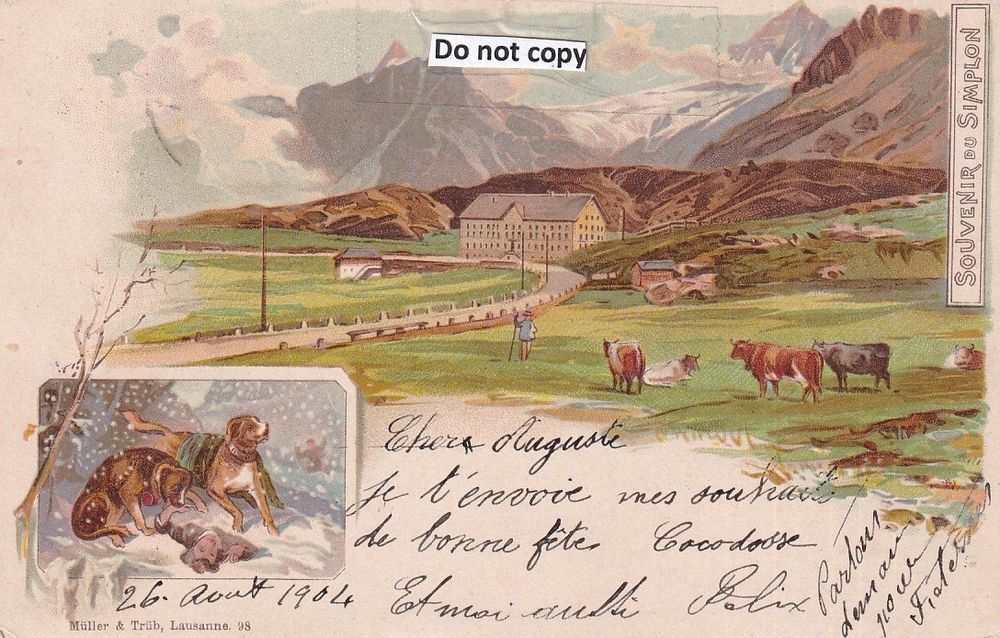 Do not copy
SOUVENIR DU SIMPLON
Cher Auguste
je t'envoie mes souhaits
de bonne fête Cocodosse
26 Août 1904 Et moi aussi Felix
Partons
demain
pour
Müller & Trüb, Lausanne. 98